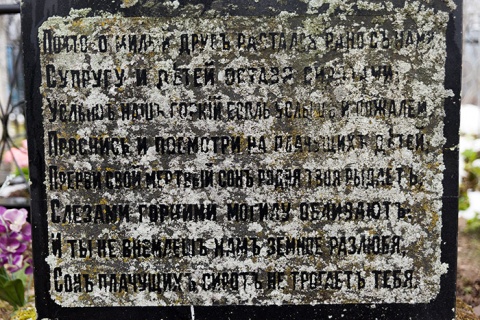 Почто о милый другъ разстался рано съ нами
Супругу и детей оставя сиротами,
Услышь нашъ горкiй вопль услышь и пожалей
Проснись и посмотри на плачущихъ детей.
Прерви свой мертвый сонъ родня твоя рыдаетъ.
Слезами горкими могилу обливаютъ.
И ты не внемлешь намъ земное разлюбя,
Сонъ плачущихъ сиротъ не трогаетъ тебя.